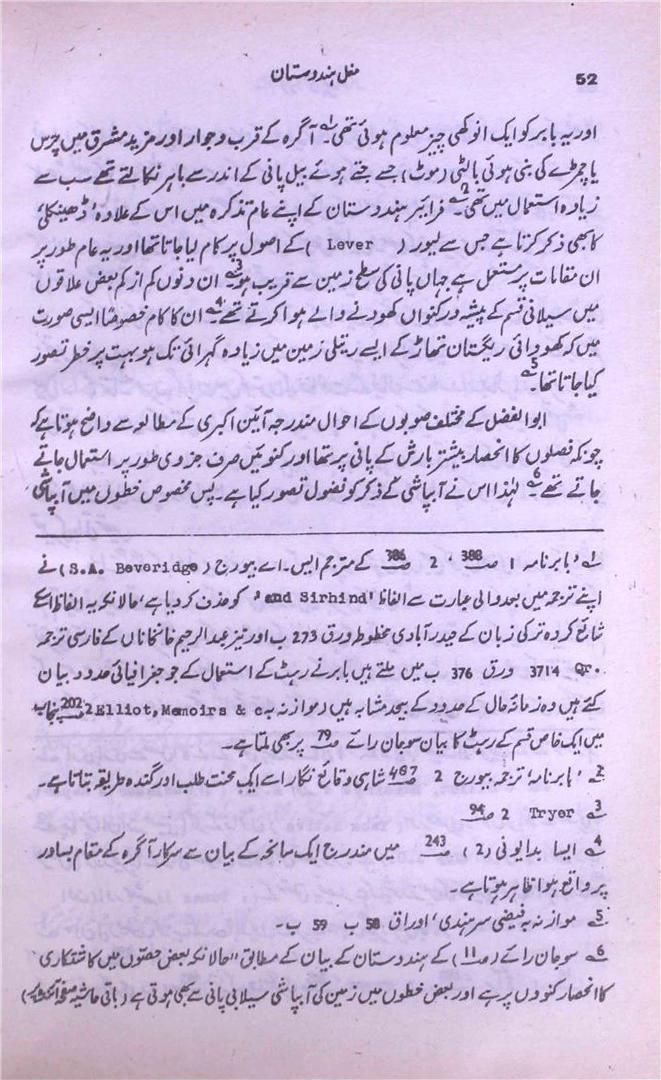 52
مغل ہندوستان
اور یہ بابر کو ایک انوکھی چیز معلوم ہوئی تھی۔1 آگرہ کے قرب و جوار اور مزید مشرق میں چرس
یا چمڑے کی بنی ہوئی بالٹی (موٹ) جسے جتے ہوئے بیل پانی کے اندر سے باہر نکالتے تھے سب سے
زیادہ استعمال میں تھی۔2 فرائیر ہندوستان کے اپنے عام تذکرہ میں اس کے علاوہ ’ڈھینکلی‘
کا بھی ذکر کرتا ہے جس سے لیور ( Lever ) کے اصول پر کام لیا جاتا تھا اور یہ عام طور پر
ان مقامات پر مستعمل ہے جہاں پانی کی سطح زمین سے قریب ہو۔3 ان دنوں کم از کم بعض علاقوں
میں سیلانی قسم کے پیشہ ور کنواں کھودنے والے ہوا کرتے تھے۔4 ان کا کام خصوصاً ایسی صورت
میں کہ کھودائی ریگستان تھاڑ کے ایسے ریتلی زمین میں زیادہ گہرائی تک ہو بہت پر خطر تصور
کیا جاتا تھا۔5
ابوالفضل کے مختلف صوبوں کے احوال مندرجہ آئین اکبری کے مطالعہ سے واضح ہوتا ہے کہ
چونکہ فصلوں کا انحصار بیشتر بارش کے پانی پر تھا اور کنوئیں صرف جزوی طور پر استعمال جاتے
جاتے تھے۔6 لہٰذا اس نے آبپاشی کے ذکر کو فضول تصور کیا ہے۔ پس مخصوص خطوں میں آبپاشی
1 ’بابرنامہ 1 ص388 ، 2 ص386 کے مترجم ایس۔ اے بیورج ( S.A. Beveridge ) نے
اپنے ترجمہ میں بعد والی عبارت سے الفاظ 'and Sirhind' کو حذف کر دیا ہے، حالانکہ یہ الفاظ اسکے
شائع کردہ ترکی زبان کے حیدرآبادی مخطوط ورق 273 ب اور نیز عبدالرحیم خانخاناں کے فارسی ترجمہ
Or. 3714 ورق 376 ب میں ملتے ہیں بابر نے رہٹ کے استعمال کے جو جغرافیائی حدود بیان
کئے ہیں وہ زمانہ حال کے حدود کے بیحد مشابہ ہیں (موازنہ بہ Elliot, Memoirs & c 2 ص202 پنجاب
میں ایک خاص قسم کے رہٹ کا بیان سوجان رائے ص79 پر بھی ملتا ہے۔
2 ’بابرنامہ‘ ترجمہ بیورج 2 487 شاہی وقائع نگار اسے ایک محنت طلب اور گندہ طریقہ بتاتا ہے۔
3 Tryer 2 ص94
4 ایسا بدایونی (2) ص243 میں مندرج ایک سانحہ کے بیان سے سرکار آگرہ کے مقام بساور
پر واقع ہوا ظاہر ہوتا ہے۔
5 موازنہ بہ فیضی سرہندی، اوراق 58 ب 59 ب۔
6 سوجان رائے (ص11) کے ہندوستان کے بیان کے مطابق ”حالانکہ بعض حصوں میں کاشتکاری
کا انحصار کنووں پر ہے اور بعض خطوں میں زمین کی آبپاشی سیلابی پانی سے بھی ہوتی ہے (باقی حاشیہ صفحہ آئندہ پر)